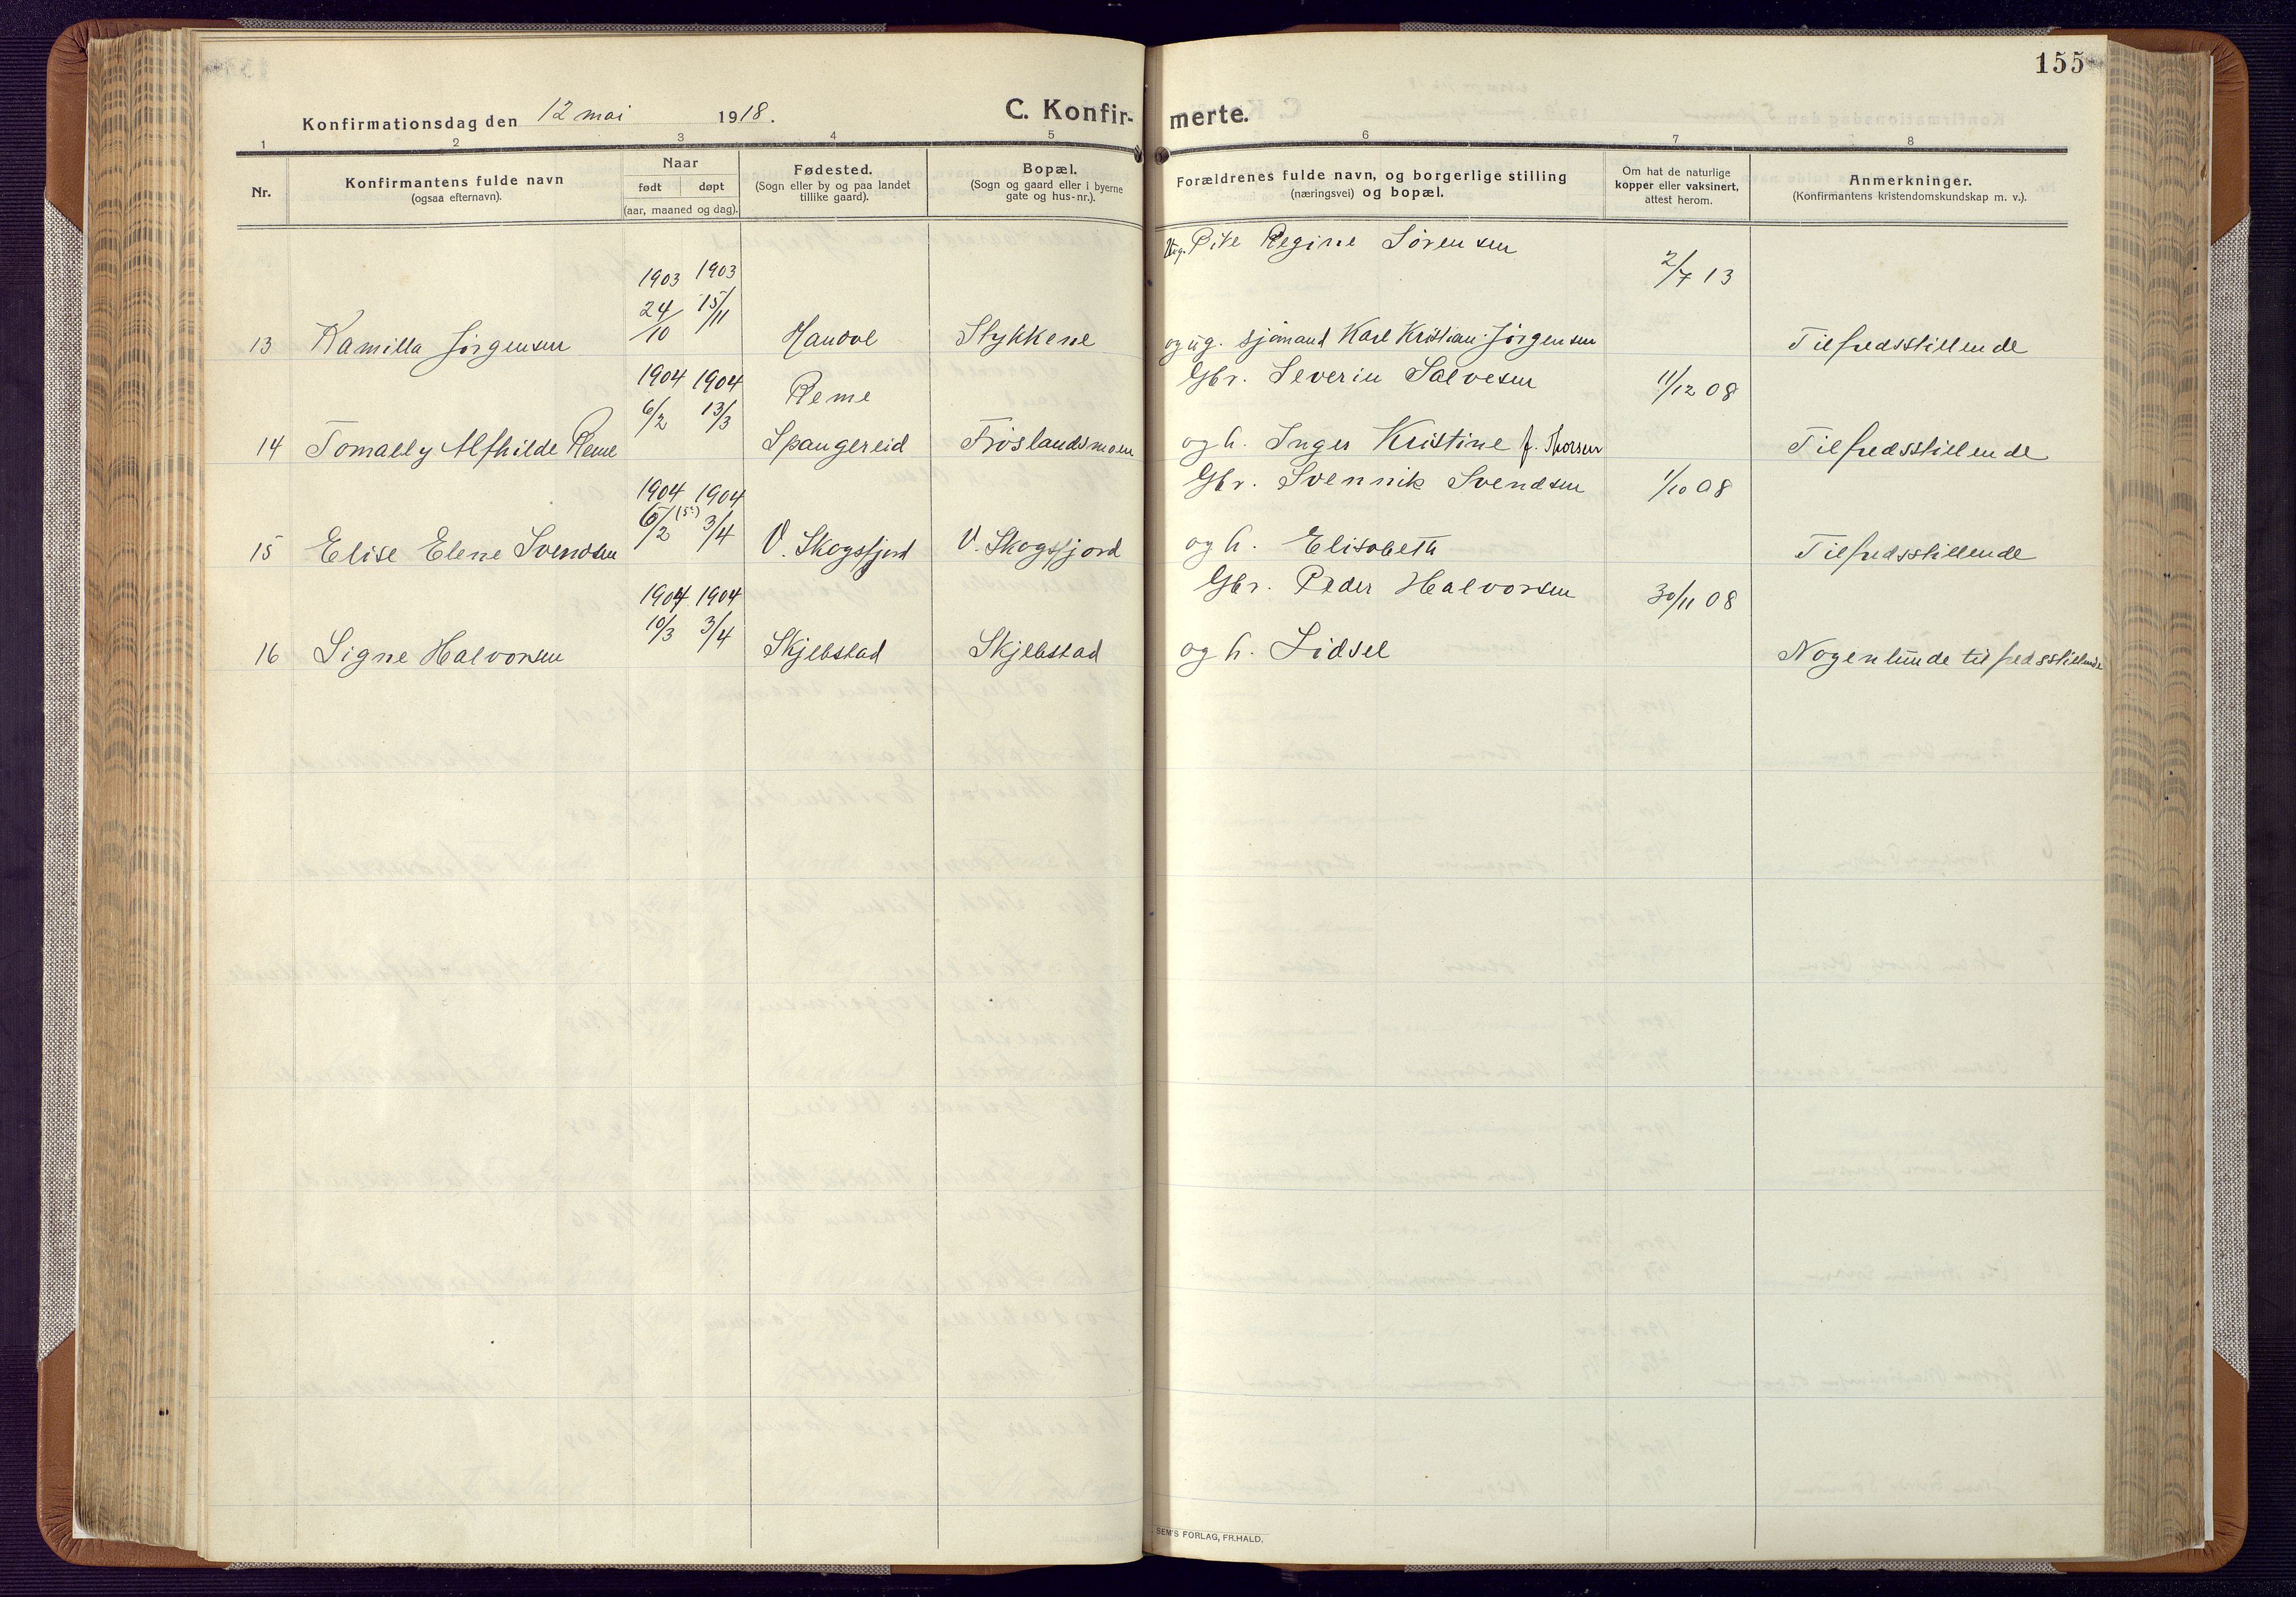 155
Konfirmationsdag den 12 mai 1918.
C. Konfir- merte.
1 2 3 4 5 6 7 8
Nr.
Konfirmantens fulde navn
(ogsaa efternavn).
Naar
født døpt
(aar, maaned og dag).
Fødested.
(Sogn eller by og paa landet
tillike gaard).
Bopæl.
(Sogn og gaard eller i byerne
gate og hus-nr.).
Forældrenes fulde navn, og borgerlige stilling
(næringsvei) og bopæl.
Om hat de naturlige
kopper eller vaksinert,
attest herom.
Anmerkninger.
(Konfirmantens kristendomskundskap m. v.).
Regine Sørensen
1903 1903 2/7 13
24/10 15/11
13 Kamilla Jørgensen Handøl Stykkene og ug. sjømand Karl Kristian Jørgensen Tilfredsstillende
1904 1904 Reme Gbr. Severin Salvesen 11/12 08
6/2 13/3
14 Tomally Alfhilde Reme Spangereid Frøslandsmoen og h. Inger Kristine f. Thorsen Tilfredsstillende
1904 1904 Gbr. Svennik Svendsen 1/10 08
6/2 (5:) 3/4
15 Elise Elene Svendsen V. Skogsfjord V. Skogsfjord og h. Elisabeth Tilfredsstillende
1904 1904 Gbr. Peder Halvorsen 30/11 08
10/3 3/4
16 Signe Halvorsen Skjebstad Skjebstad og h. Sidsel Nogenlunde tilfredsstillende
SEM'S FORLAG, FR.HALD.